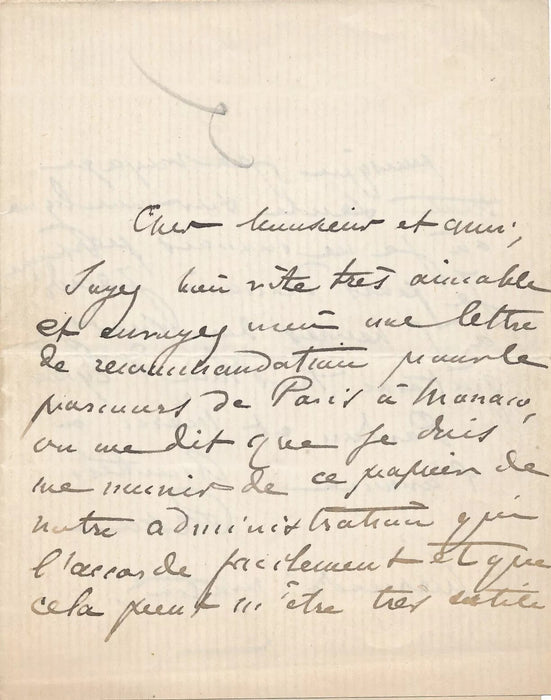 Cher Monsieur et ami,
Soyez bien vite très aimable
et envoyez moi une lettre
de recommandation pour le
parcours de Paris à Monaco,
on me dit que je dois
me munir de ce papier de
notre administration qui
l'accorde facilement et que
cela peut m'être très utile